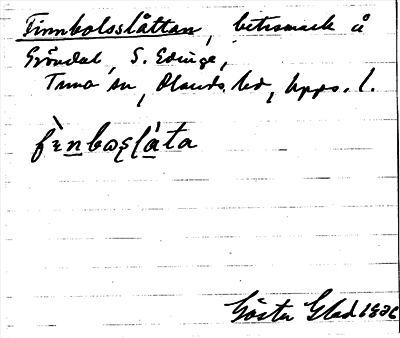 Finnbolsslåttan, betesmark å
Gröndal, S. Edinge,
Tuna sn, Olands hd, Upps. l.
fὲnboʂlàta
Gösta Glad 1936